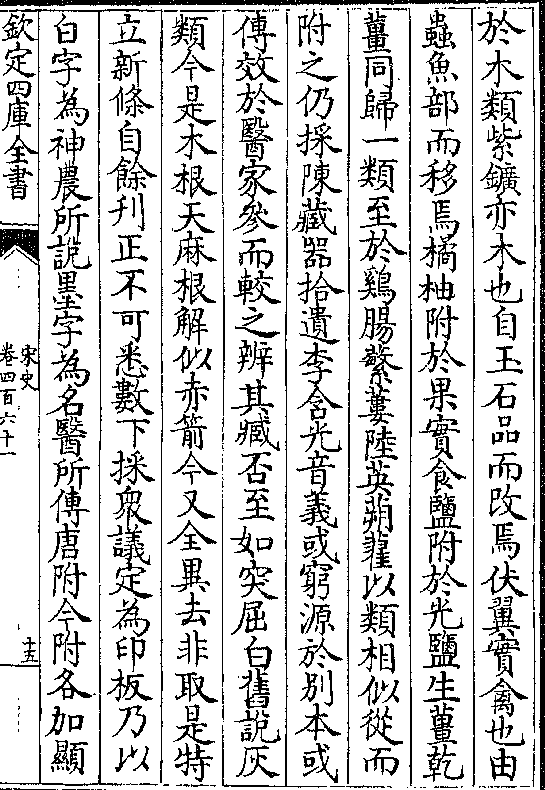 於木類紫鑛亦木也自玉石品而改焉伏翼實禽也由
蟲魚部而移焉橘柚附於果實食鹽附於光鹽生薑乾
薑同歸一類至於鷄腸蘩蔞陸英蒴藋以類相似從而
附之仍採陳藏器拾遺李含光音義或窮源於別本或
傳效於醫家參而較之辨其臧否至如突屈白舊說灰
類今是木根天麻根解似赤箭今又全異去非取是特
立新條自餘刋正不可悉數下採衆議定為印板乃以
白字為神農所說墨字為名醫所傳唐附今附各加顯
欽定四庫全書
宋史
卷四百六十一
十五